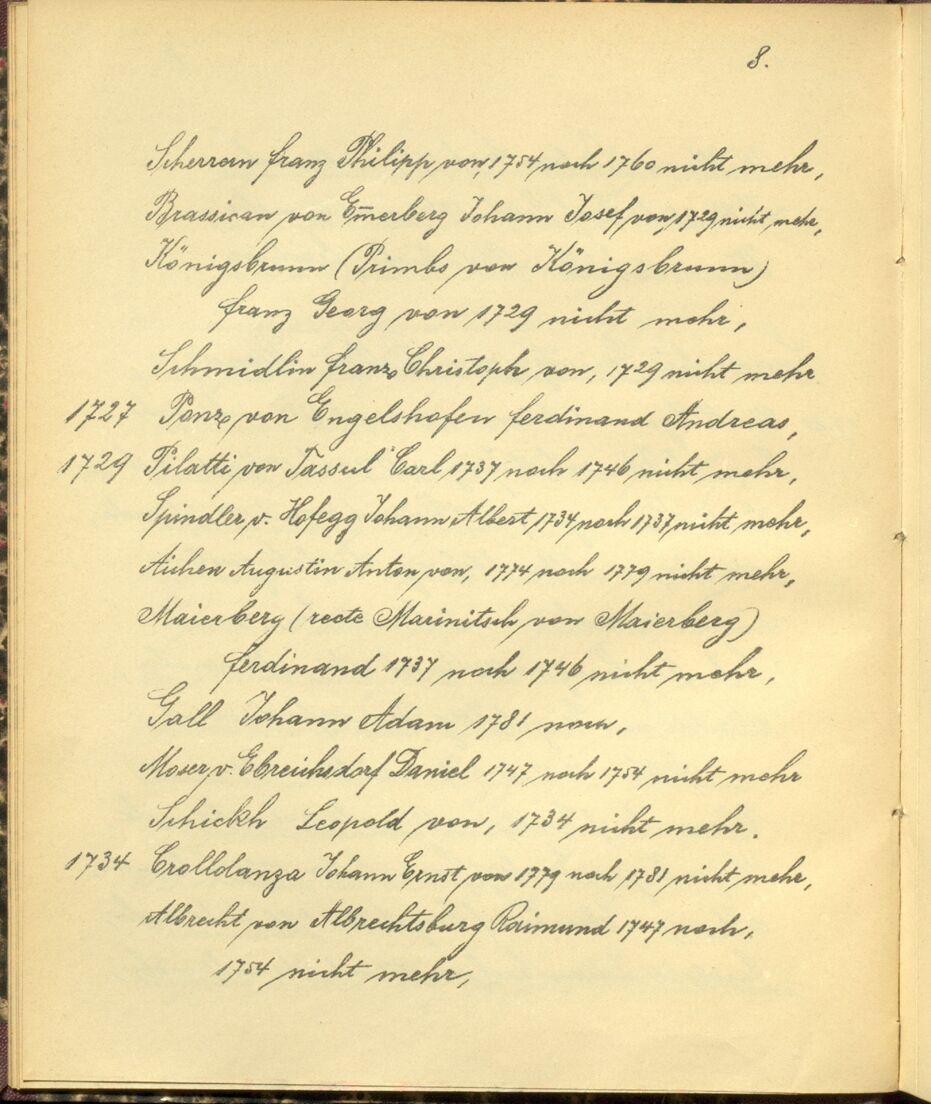 8.
Scherrern Franz Philipp von, 1754 noch 1760 nicht mehr,
Brassican von Em̅erberg Johann Josef von, 1729 nicht mehr,
Königsbrunn (Primbs von Königsbrunn)
Franz Georg von 1729 nicht mehr,
Schmidlin Franz Christoph von, 1729 nicht mehr
1727 Ponz von Engelshofen Ferdinand Andreas,
1729 Pilatti von Tassul Carl 1737 noch 1746 nicht mehr,
Spindler v. Hofegg Johann Albert 1734 noch 1737 nicht mehr,
Aichen Augustin Anton von, 1774 noch 1779 nicht mehr,
Maierberg (recte Marinitsch von Maierberg)
Ferdinand 1737 noch 1746 nicht mehr,
Gall Johann Adam 1781 noch,
Moser v. Ebreichsdorf Daniel 1747 noch 1754 nicht mehr
Schickh Leopold von, 1734 nicht mehr.
1734 Crolldanza Johann Ernst von 1779 noch 1781 nicht mehr,
Albrecht von Albrechtsburg Raimund 1747 noch,
1754 nicht mehr,